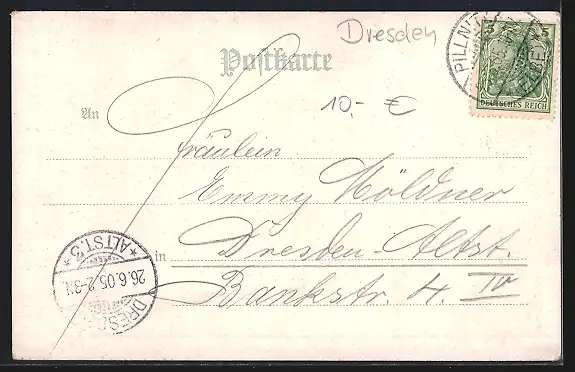 Dresden
Postkarte
PILLNITZ
5 5
DEUTSCHES REICH
10,- €
An
Fräulein
Emmy Höldner
in Dresden-Altst.
Bankstr. 4. IV
* ALTST. 3 *
26.6.05. 2-3N.
DRESDEN